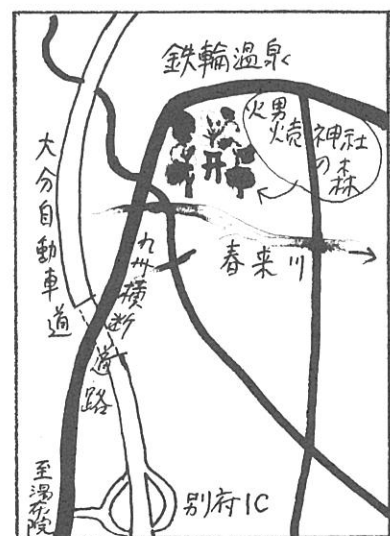 鉄輪温泉
火男火売
神社
の森
大分自動車道
九州横断道路
春来川
至湯布院
別府IC